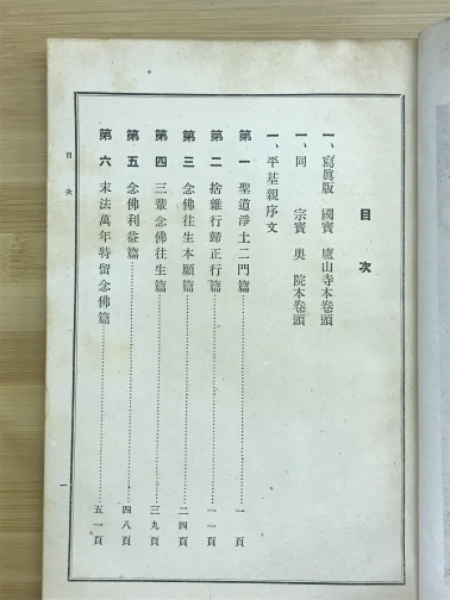 目次
一、寫眞版 國寳 廬山寺本卷頭
一、同 宗寳 奥院本卷頭
一、平基親序文
第一 聖道淨土二門篇……………………一頁
第二 捨雜行歸正行篇……………………一一頁
第三 念佛往生本願篇……………………二四頁
第四 三輩念佛往生篇……………………三九頁
第五 念佛利益篇……………………四八頁
第六 末法萬年特留念佛篇……………………五一頁
目次
一